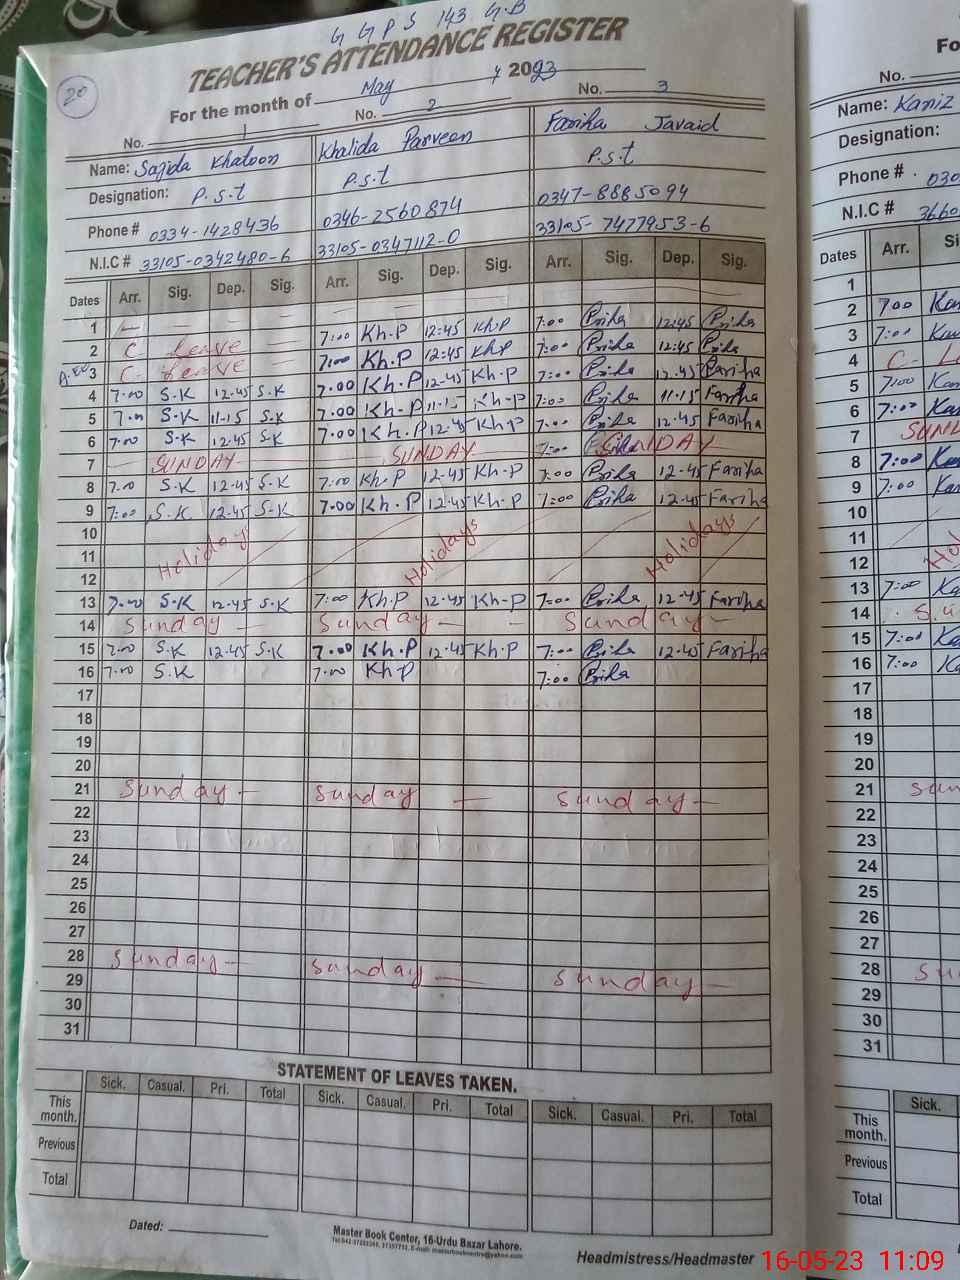 G G P S 143 G.B
TEACHER'S ATTENDANCE REGISTER
20
For the month of May 2023
No. 1 No. 2 No. 3
Name: Sajida Khatoon Khalida Parveen Fariha Javaid
Designation: P.s.t P.s.t P.s.t
Phone # 0334-1428436 0346-2560874 0347-8885094
N.I.C # 33105-0342480-6 33105-0347112-0 33105-7477953-6
Dates Arr. Sig. Dep. Sig. Arr. Sig. Dep. Sig. Arr. Sig. Dep. Sig.
1
2 C- Leave 7:00 Kh.P 12:45 Kh.P 7:00 12:45
3 C- Leave 7:00 Kh.P 12:45 Kh.P 7:00 12:45
4 7.00 S.K 12.45 S.K 7.00 Kh.P 12.45 Kh.P 7:00 12.45 Fariha
5 7.00 S.K 11.15 S.K 7.00 Kh.P 11.15 Kh.P 7:00 11.15 Fariha
6 7:00 S.K 12.45 S.K 7:00 Kh.P 12.45 Kh.P 7:00 12.45 Fariha
7 SUNDAY SUNDAY 7:00 SUNDAY
8 7.00 S.K 12.45 S.K 7:00 Kh.P 12.45 Kh.P 7:00 12.45 Fariha
9 7:00 S.K 12.45 S.K 7.00 Kh.P 12.45 Kh.P 7:00 12.45 Fariha
10
11 Holiday Holidays Holidays
12
13 7.00 S.K 12.45 S.K 7:00 Kh.P 12.45 Kh-P 7:00 12.45 Fariha
14 Sunday - Sunday - Sunday -
15 7.00 S.K 12.45 S.K 7.00 Kh.P 12.45 Kh.P 7:00 12.45 Fariha
16 7.00 S.K 7:00 Kh.P 7:00
17
18
19
20
21 Sunday - Sunday - Sunday -
22
23
24
25
26
27
28 Sunday - Sunday - Sunday -
29
30
31
STATEMENT OF LEAVES TAKEN.
Sick. Casual. Pri. Total Sick. Casual. Pri. Total Sick. Casual. Pri. Total
This month.
Previous
Total
Dated:
Master Book Center, 16-Urdu Bazar Lahore.
Headmistress/Headmaster
Fo
No.
Name: Kaniz
Designation:
Phone # 030
N.I.C # 3660
Dates Arr. Si
1
2 7:00 Kan
3 7:00 Kan
4 C- L
5 7:00 Kan
6 7:00 Kan
7 SUN
8 7:00 Kan
9 7:00 Kan
10
11
12 Ho
13 7:00 Ka
14 Su
15 7:00 Ka
16 7:00 Ka
17
18
19
20
21 Sun
22
23
24
25
26
27
28 Su
29
30
31
Sick.
This month.
Previous
Total
16-05-23 11:09